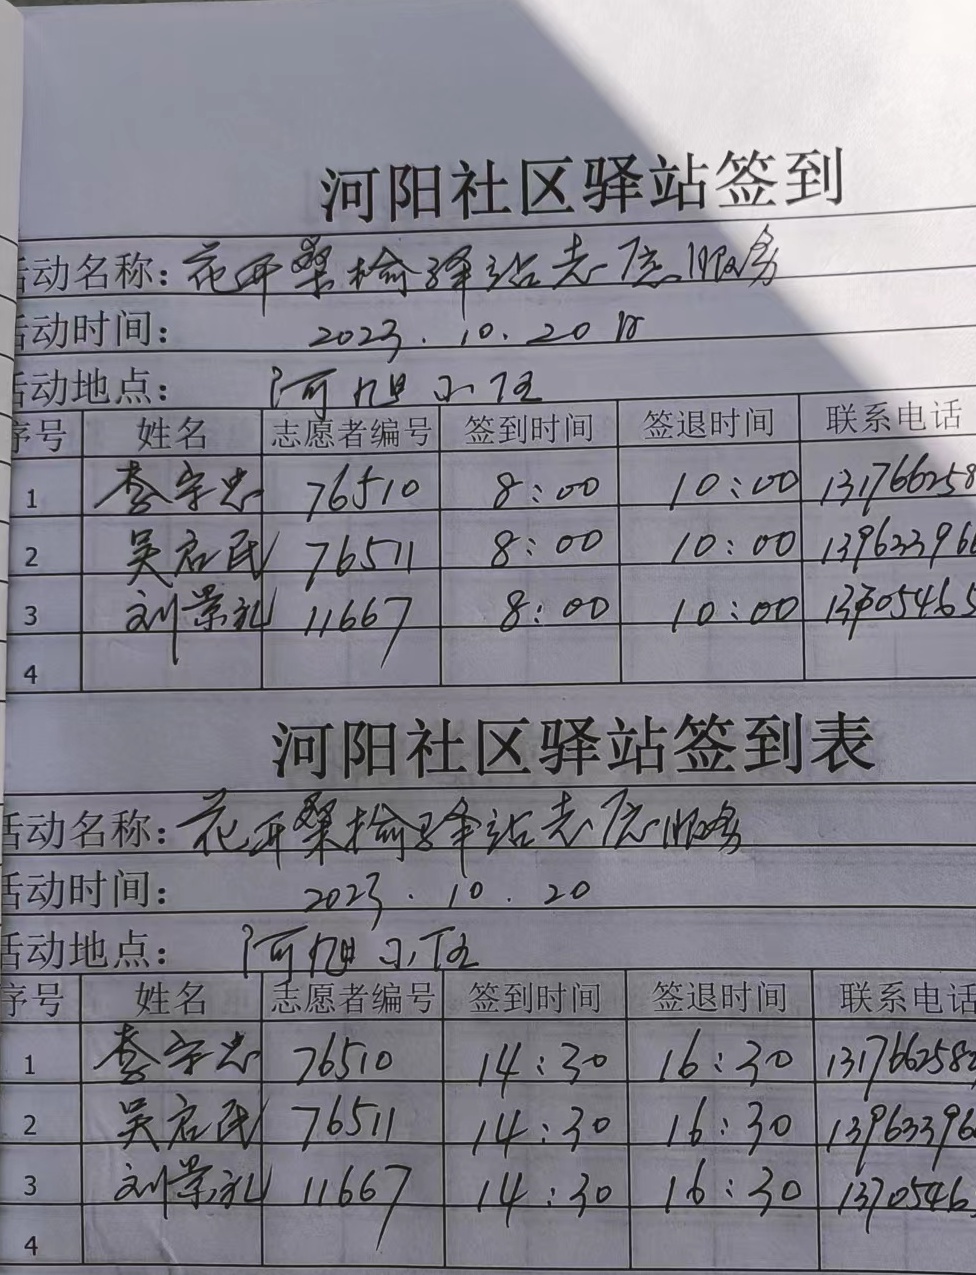 河阳社区驿站签到
活动名称：花开桑榆驿站志愿服务
活动时间： 2023.10.20日
活动地点： 河旭小区
序号 姓名 志愿者编号 签到时间 签退时间 联系电话
1 李宗忠 76510 8:00 10:00 131766258
2 吴启民 76511 8:00 10:00 139633966
3 刘景礼 11667 8:00 10:00 13705465
4
河阳社区驿站签到表
活动名称：花开桑榆驿站志愿服务
活动时间： 2023.10.20
活动地点： 河旭小区
序号 姓名 志愿者编号 签到时间 签退时间 联系电话
1 李宗忠 76510 14:30 16:30 131766258
2 吴启民 76511 14:30 16:30 13963396
3 刘景礼 11667 14:30 16:30 1370546
4